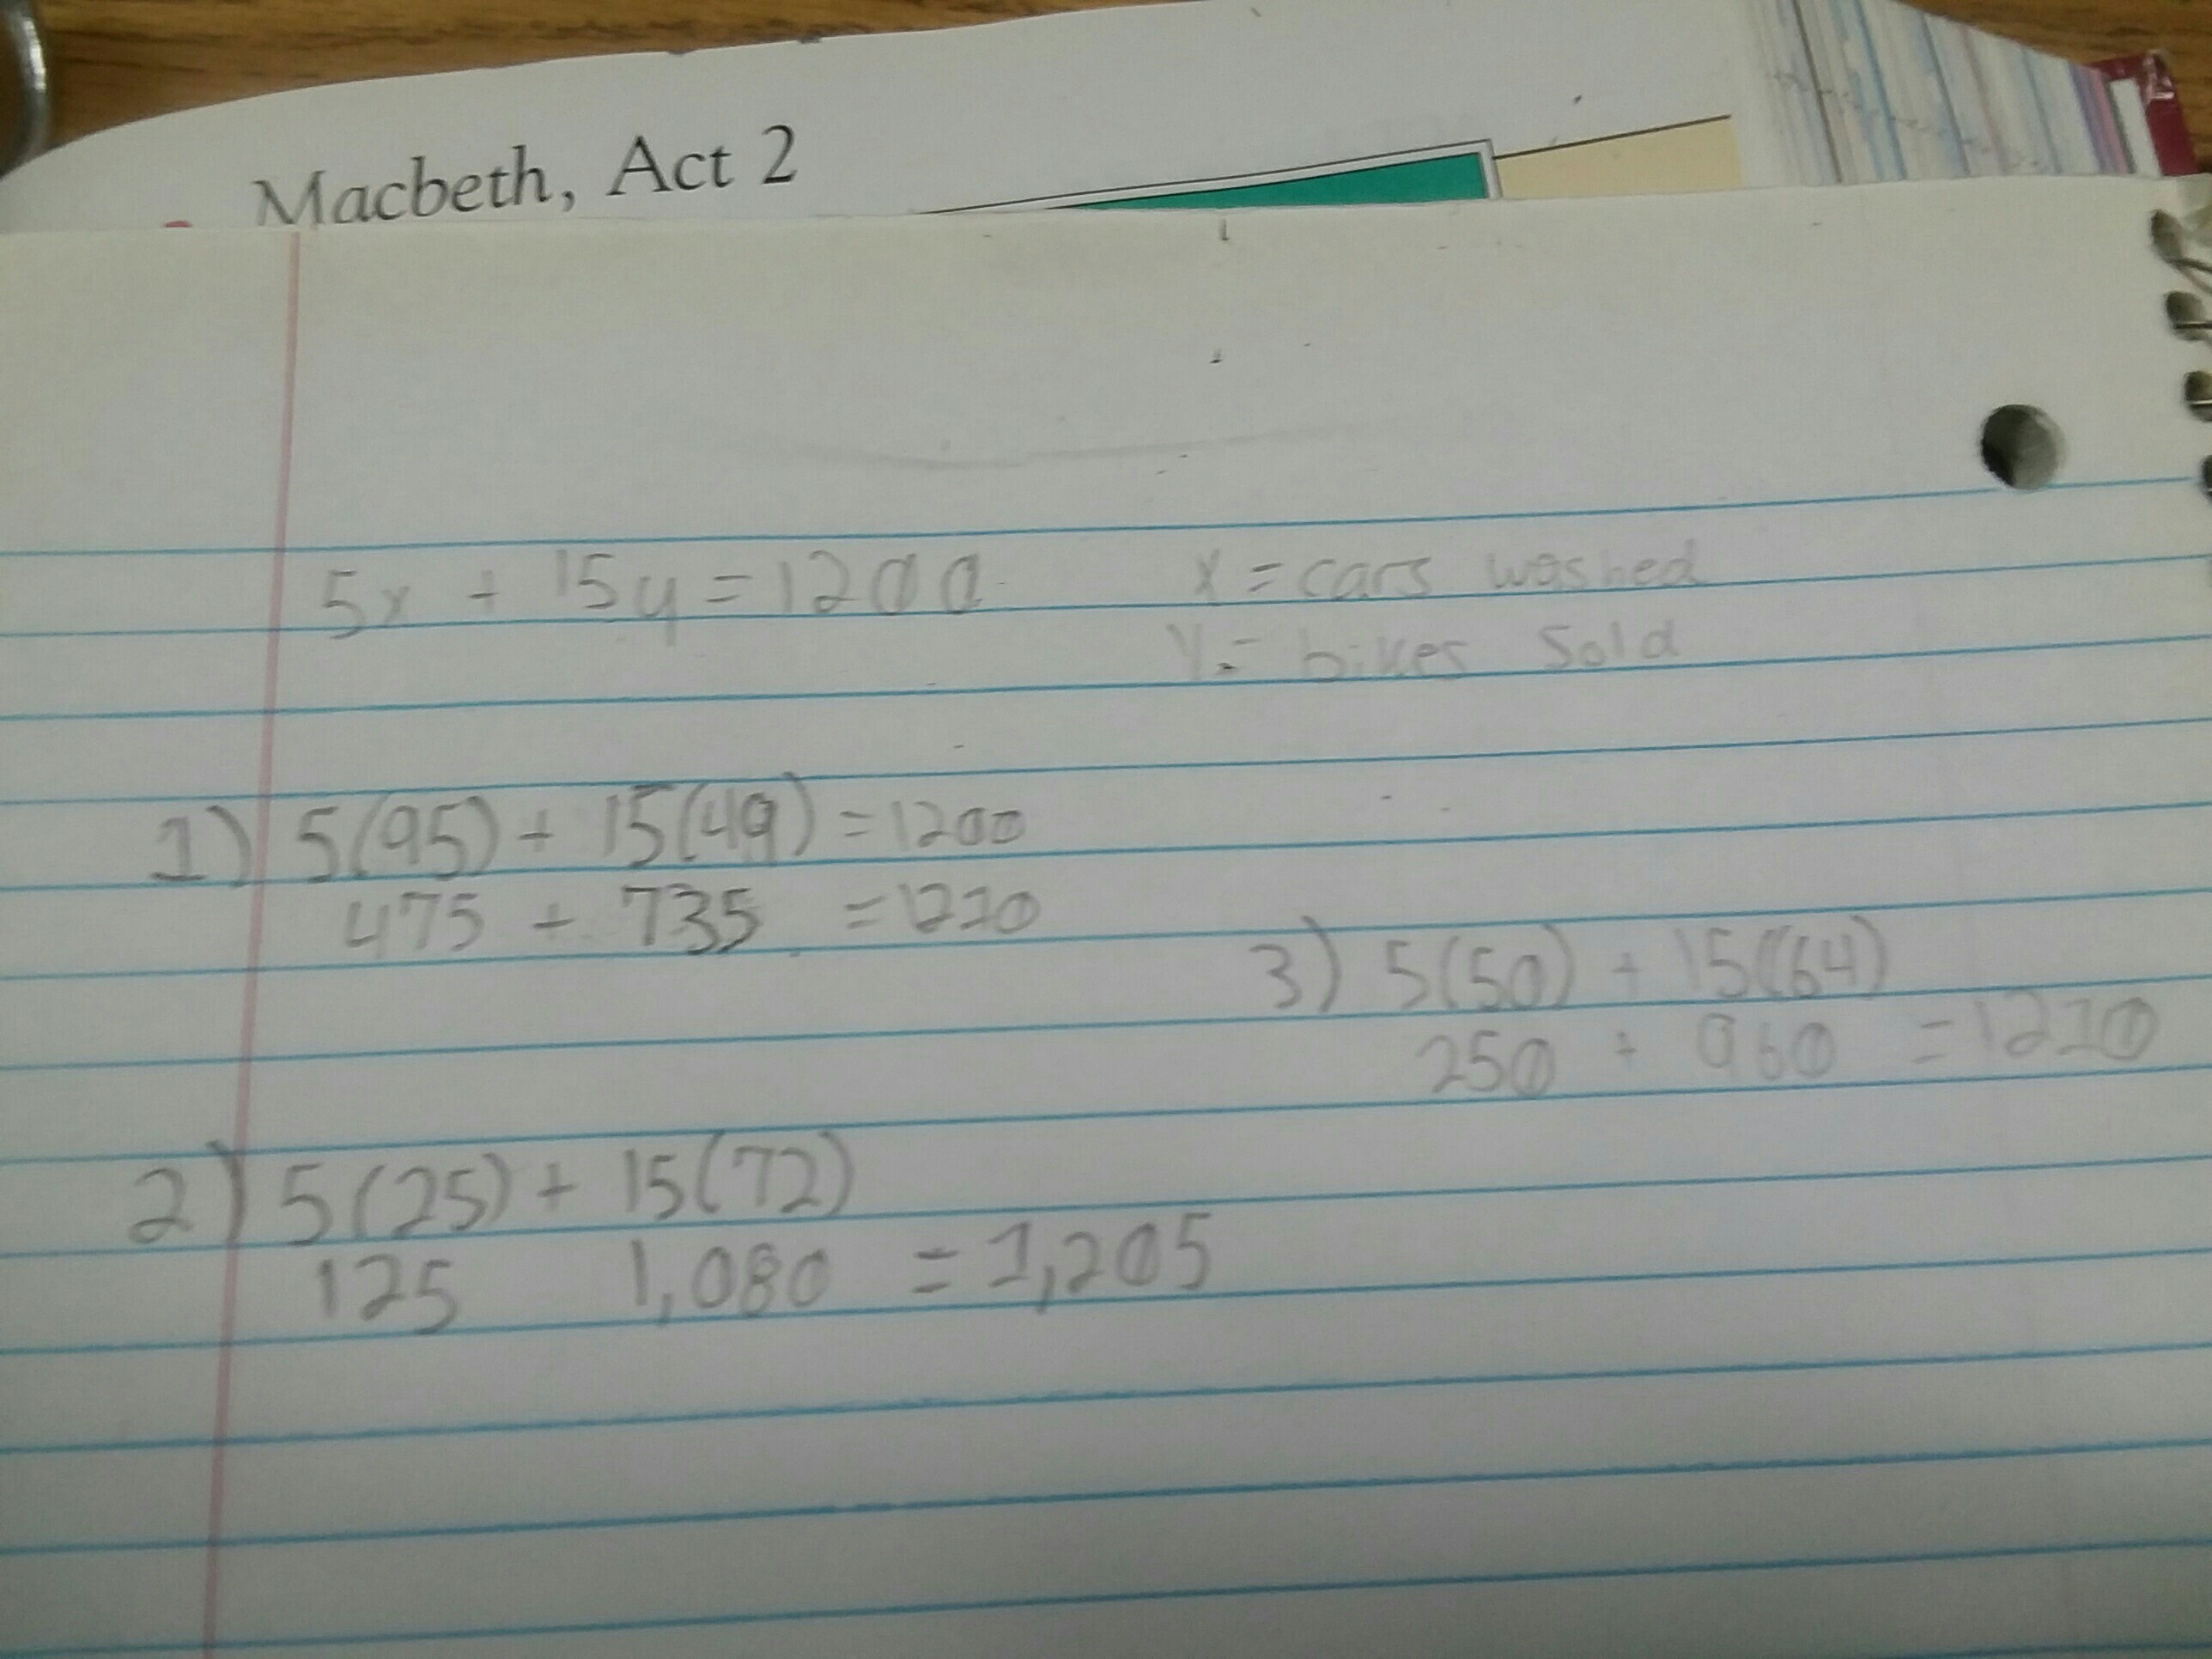 Macbeth, Act 2
5x + 15y = 1200
x = cars washed
y = bikes sold
1) 5(95) + 15(49) = 1200
475 + 735 = 1210
3) 5(50) + 15(64)
250 + 960 = 1210
2) 5(25) + 15(72)
125 1,080 = 1,205